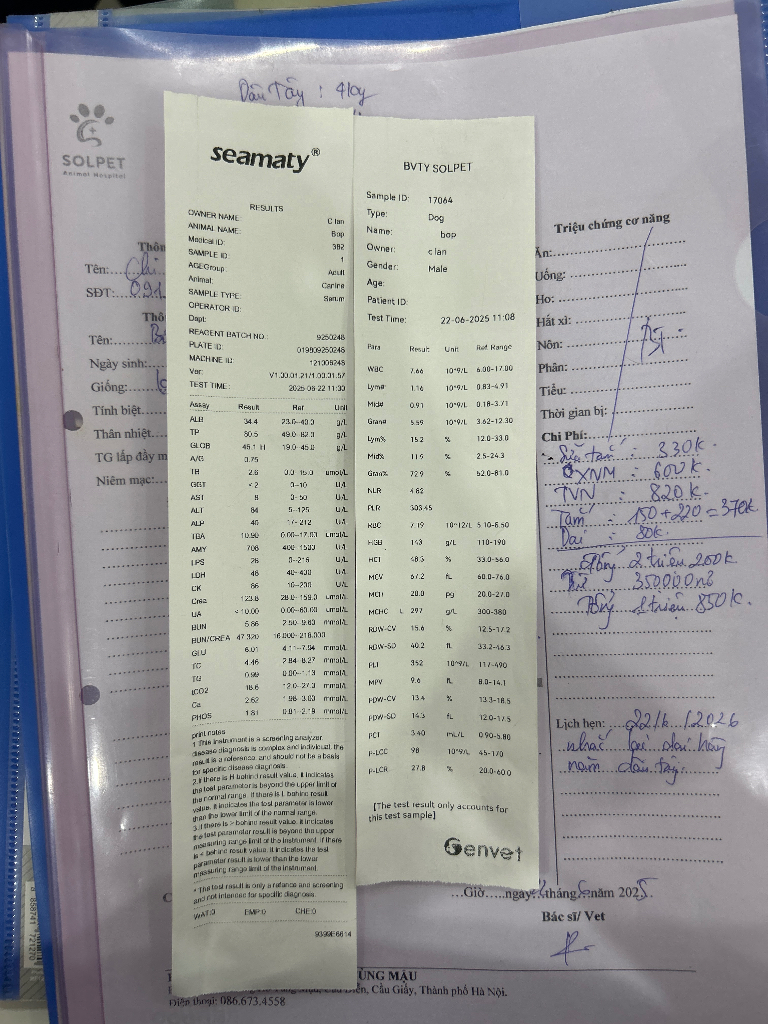 Dâu Tây : 4
SOLPET
Animal Hospital
seamaty®
RESULTS
OWNER NAME: C lan
ANIMAL NAME: Bop
Medical ID: 382
SAMPLE ID: 1
AGEGroup: Adult
Animal: Canine
SAMPLE TYPE: Serum
OPERATOR ID:
Dept:
REAGENT BATCH NO.: 9250248
PLATE ID: 019809250248
MACHINE ID: 121006248
Ver: V1.00.01.21/1.00.01.57
TEST TIME: 2025-06-22 11:30
Assay Result Ref Unit
ALB 34.4 23.0-40.0 g/L
TP 80.5 49.0-82.0 g/L
GLOB 46.1 H 19.0-45.0 g/L
A/G 0.75
TB 2.6 0.0-15.0 umol/L
GGT <2 0-10 U/L
AST 8 0-50 U/L
ALT 84 5-125 U/L
ALP 45 17-212 U/L
TBA 10.90 0.00-17.00 umol/L
AMY 706 400-1500 U/L
LPS 26 0-216 U/L
LDH 46 40-400 U/L
CK 66 10-200 U/L
Crea 123.8 28.0-159.0 umol/L
UA <10.00 0.00-60.00 umol/L
BUN 5.86 2.50-9.60 mmol/L
BUN/CREA 47.320 16.000-218.000
GLU 6.01 4.11-7.94 mmol/L
TC 4.46 2.84-8.27 mmol/L
TG 0.99 0.00-1.13 mmol/L
tCO2 18.6 12.0-27.0 mmol/L
Ca 2.62 1.98-3.00 mmol/L
PHOS 1.81 0.81-2.19 mmol/L
print notes
1.This instrument is a screening analyzer,
disease diagnosis is complex and individual, the
result is a reference, and should not be a basis
for specific disease diagnosis.
2.If there is H behind result value, it indicates
the test parameter is beyond the upper limit of
the normal range. If there is L behind result
value, it indicates the test parameter is lower
than the lower limit of the normal range.
3.If there is > behind result value, it indicates
the test parameter result is beyond the upper
measuring range limit of the instrument. If there
is < behind result value, it indicates the test
parameter result is lower than the lower
measuring range limit of the instrument.
*The test result is only a refance and screening
and not intended for specific diagnosis.
WAT:0 EMP:0 CHE:0
9399E6614
BVTY SOLPET
Sample ID: 17064
Type: Dog
Name: bop
Owner: c lan
Gender: Male
Age:
Patient ID:
Test Time: 22-06-2025 11:08
Para Result Unit Ref. Range
WBC 7.66 10^9/L 6.00-17.00
Lym# 1.16 10^9/L 0.83-4.91
Mid# 0.91 10^9/L 0.18-3.71
Gran# 5.59 10^9/L 3.62-12.30
Lym% 15.2 % 12.0-33.0
Mid% 11.9 % 2.5-24.3
Gran% 72.9 % 52.0-81.0
NLR 4.82
PLR 303.45
RBC 7.19 10^12/L 5.10-8.50
HGB 143 g/L 110-190
HCT 48.3 % 33.0-56.0
MCV 67.2 fL 60.0-76.0
MCH 20.0 pg 20.0-27.0
MCHC L 297 g/L 300-380
RDW-CV 15.6 % 12.5-17.2
RDW-SD 40.2 fL 33.2-46.3
PLT 352 10^9/L 117-490
MPV 9.6 fL 8.0-14.1
PDW-CV 13.4 % 13.3-18.5
PDW-SD 14.3 fL 12.0-17.5
PCT 3.40 mL/L 0.90-5.80
P-LCC 98 10^9/L 45-170
P-LCR 27.8 % 20.0-60.0
[The test result only accounts for
this test sample]
Genvet
Thôn
Tên: Chị
SĐT: 091
Thô
Tên: B
Ngày sinh:
Giống:
Tính biệt
Thân nhiệt
TG lấp đầy m
Niêm mạc:
Triệu chứng cơ năng
Ăn:
Uống:
Ho:
Hắt xì:
Nôn: BT
Phân:
Tiểu:
Thời gian bị:
Chi Phí:
Sữa tắm : 330k
XNM : 600k.
TVN : 820k.
Tắm : 150 + 220 = 370k
Dại : 80k.
Tổng 2 triệu 200k
Trừ 350000
Tổng 1 triệu 850k.
Lịch hẹn: 22/6/2026
nhắc lại dại hàng
năm dâu tây.
Giờ.....ngày 22 tháng 6 năm 2025
Bác sĩ/ Vet
ÙNG MẬU
Diễn, Cầu Giấy, Thành phố Hà Nội.
Điện thoại: 086.673.4558
8 858741 721270